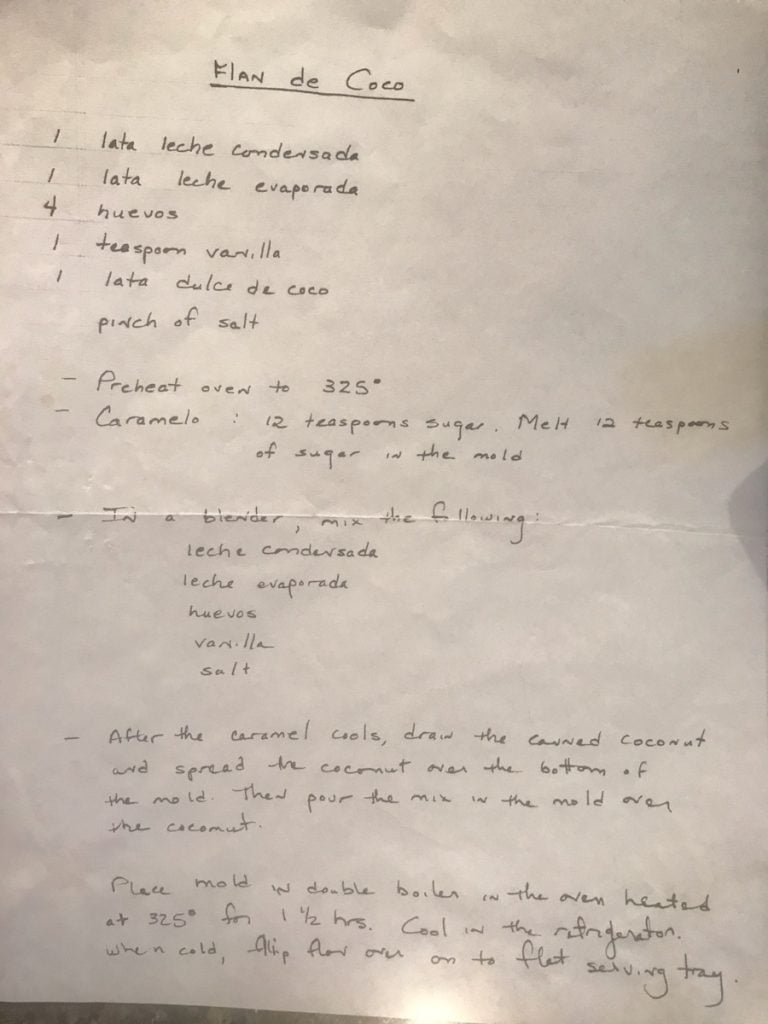 FlAN de Coco
1 lata leche condensada
1 lata leche evaporada
4 huevos
1 teaspoon vanilla
1 lata dulce de coco
pinch of salt
- Preheat oven to 325°
- Caramelo : 12 teaspoons sugar. Melt 12 teaspoons
of sugar in the mold
- In a blender, mix the following:
leche condensada
leche evaporada
huevos
vanilla
salt
- After the caramel cools, drain the canned coconut
and spread the coconut over the bottom of
the mold. Then pour the mix in the mold over
the coconut.
Place mold in double boiler in the oven heated
at 325° for 1 1/2 hrs. Cool in the refrigerator.
When cold, flip flan over on to flat serving tray.